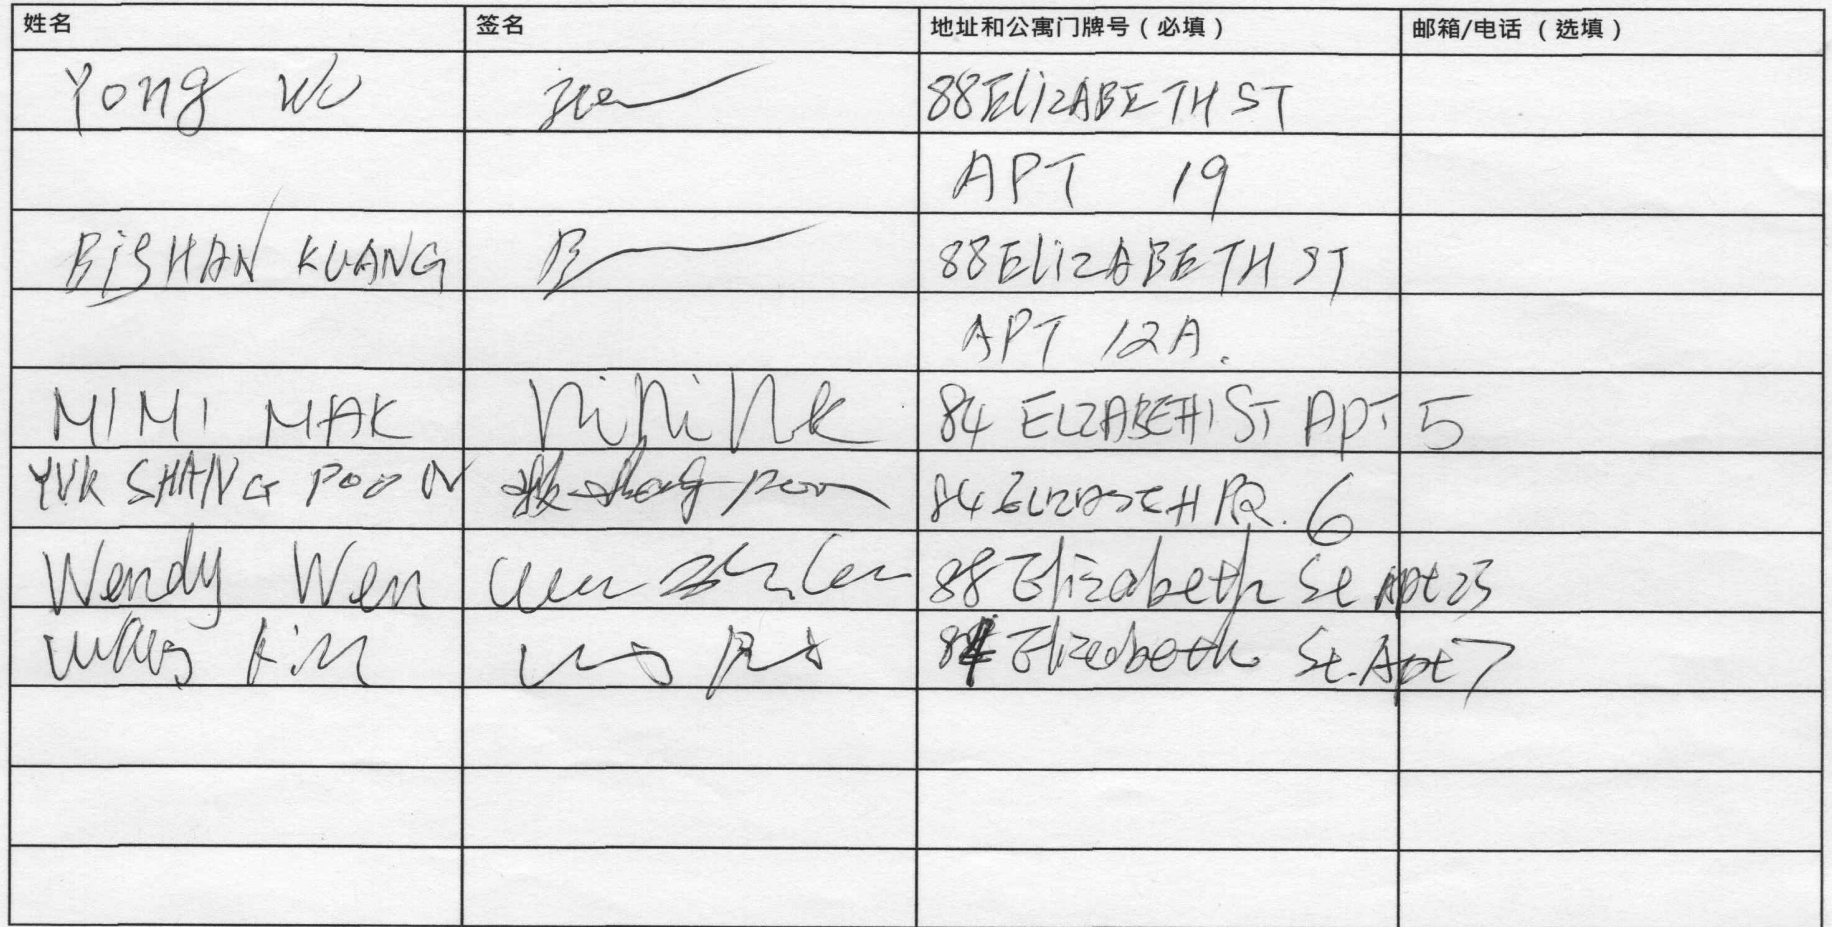 姓名 签名 地址和公寓门牌号（必填） 邮箱/电话（选填）
Yong Wu 88 ELIZABETH ST
APT 19
BISHAN KUANG 88 ELIZABETH ST
APT 12A.
MIMI MAK 84 ELZABETH ST APT 5
YUK SHANG POON 84 6
Wendy Wen 88 Elizabeth St Apt 23
84 Elizabeth St. Apt 7